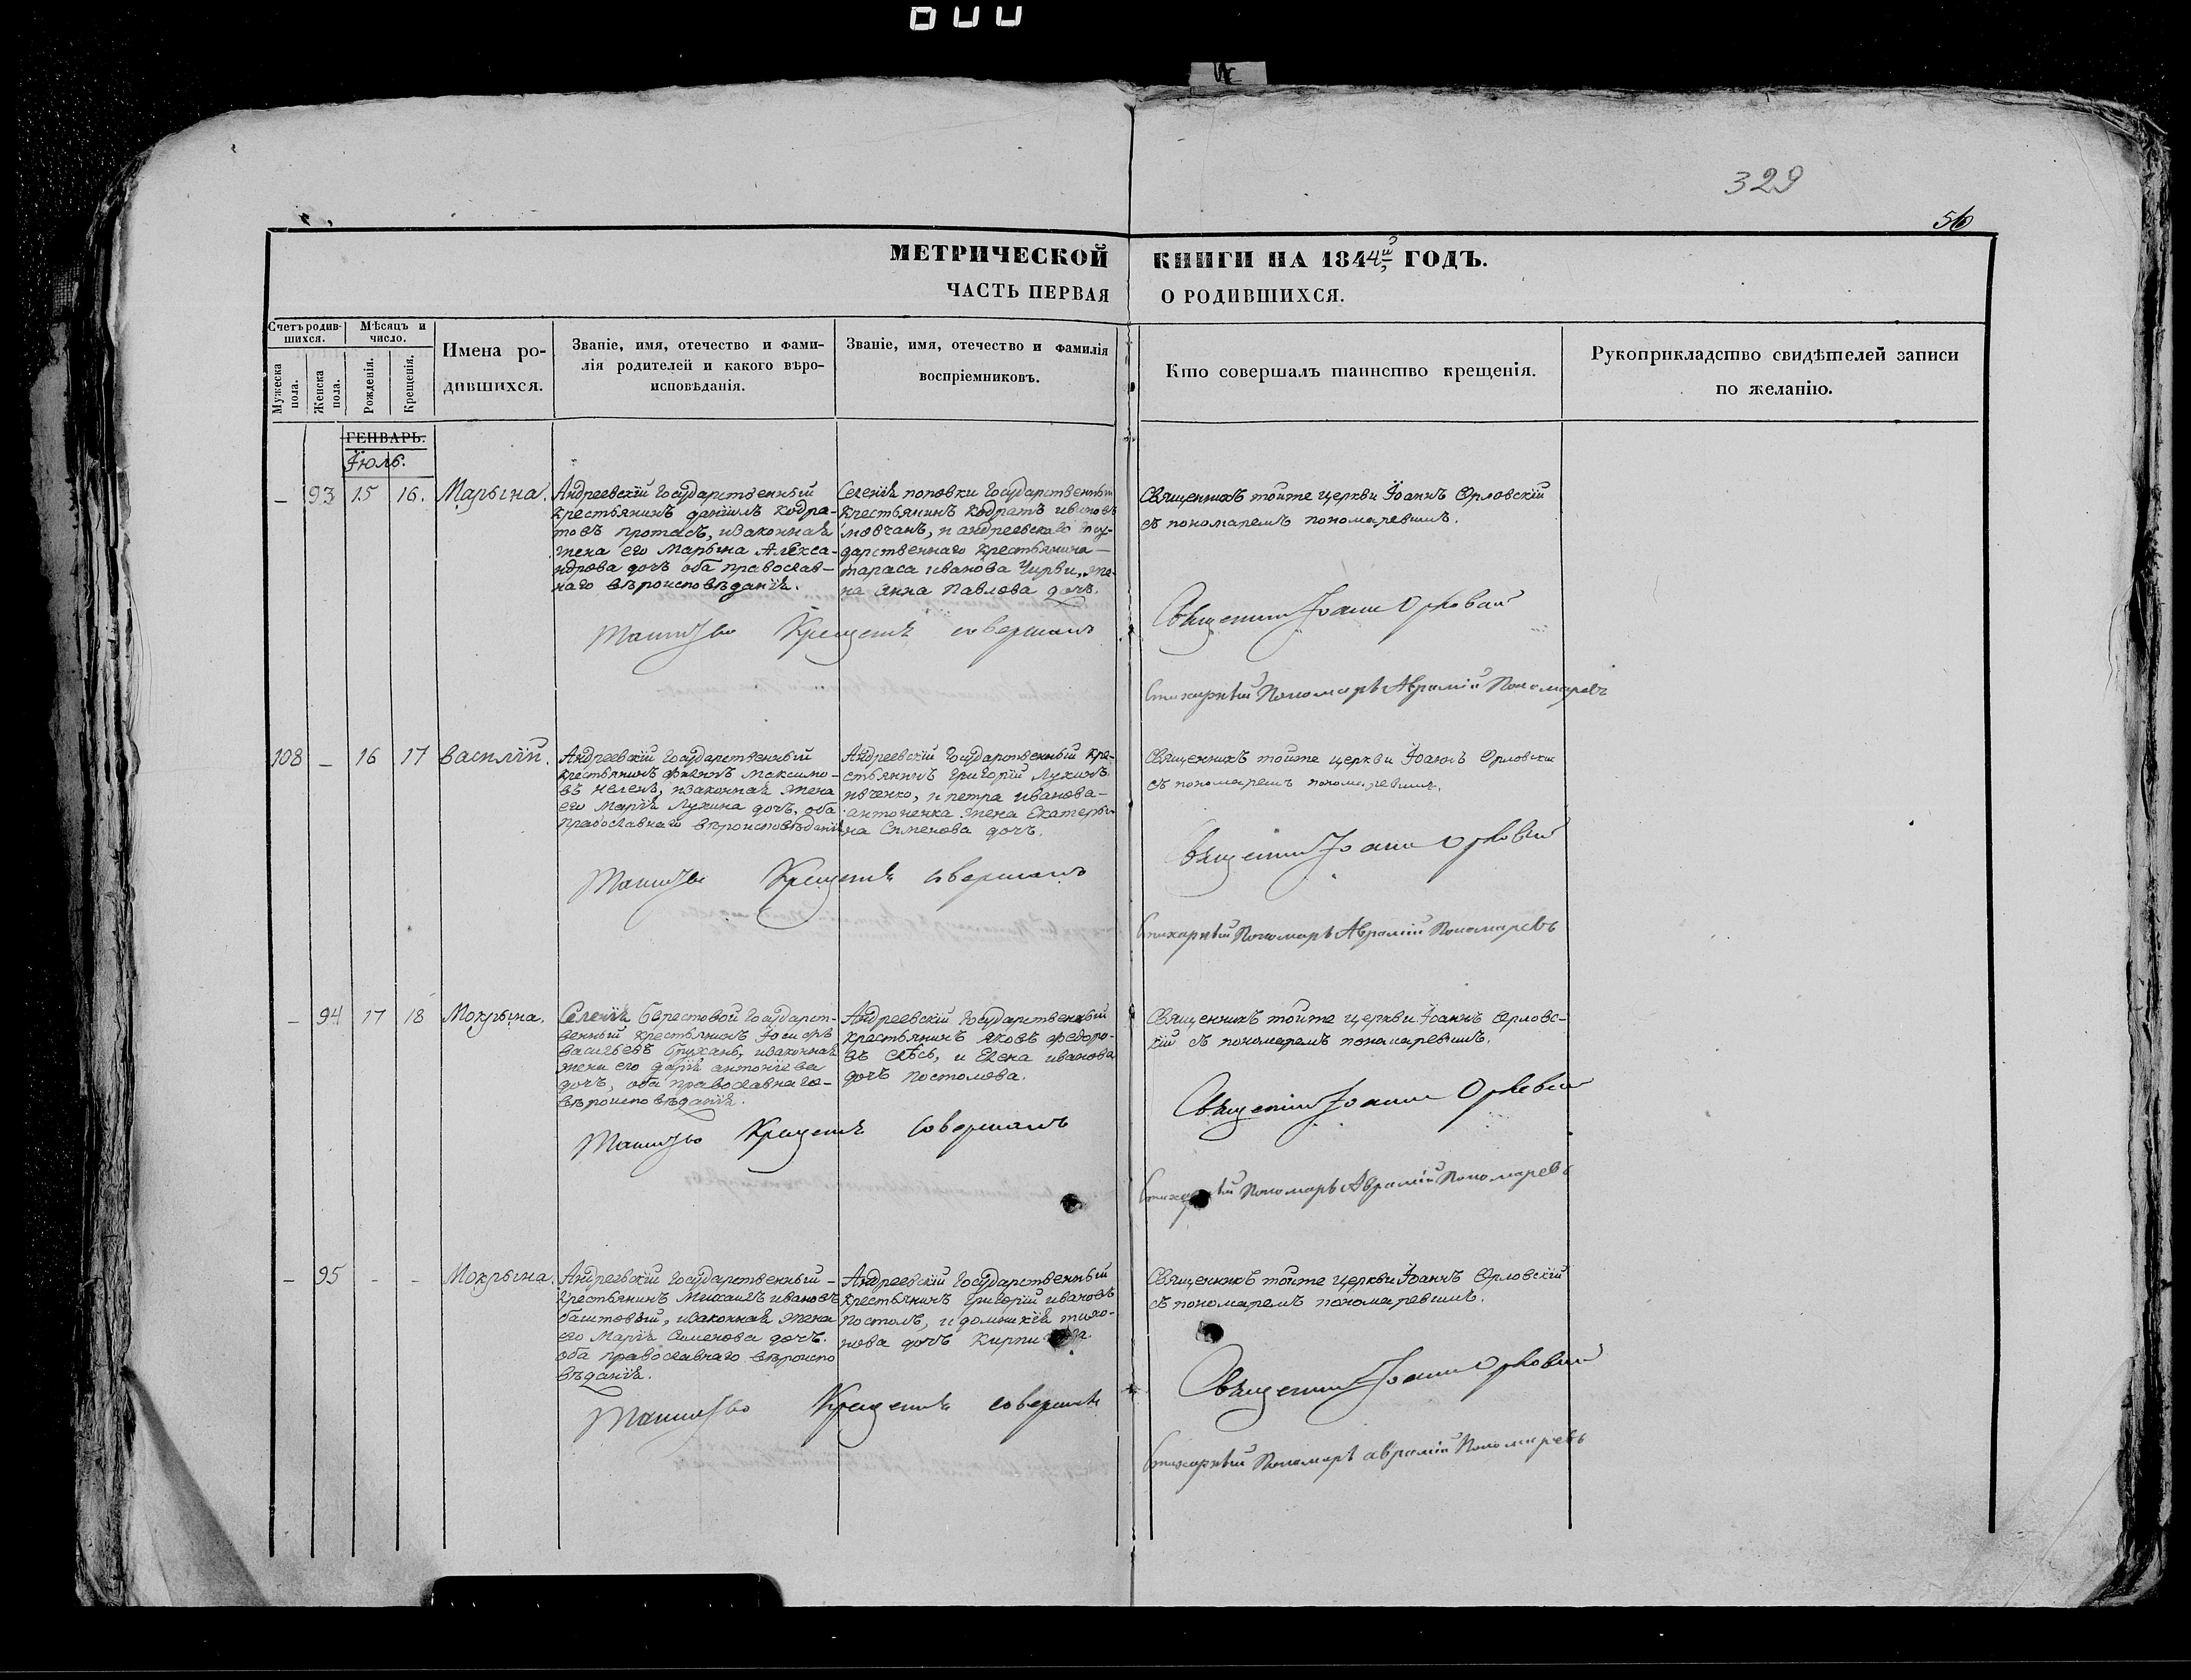 329
56
МЕТРИЧЕСКОЙ КНИГИ НА 1844й ГОДЪ.
ЧАСТЬ ПЕРВАЯ О РОДИВШИХСЯ.
Счетъ родив-
шихся.
Мужеска
пола.
Женска
пола.
Мѣсяцъ и
число.
Рожденія.
Крещенія.
Имена ро-
дившихся.
Званіе, имя, отечество и фами-
лія родителей и какого вѣро-
исповѣданія.
Званіе, имя, отечество и фамилія
воспріемниковъ.
Кто совершалъ таинство крещенія.
Рукоприкладство свидѣтелей записи
по желанію.
ГЕНВАРЬ.
Іюль.
– 93 15 16. Марьина.
Андреевскій государственный
крестьянинъ даніилъ кодра-
товъ протасъ, изаконная
жена его Марьина Алекса-
ндрова дочь оба православ-
наго вѣроисповѣданія.
Селенія поповки государственный
крестьянинъ кодратъ ивановъ
мовчанъ, и андреевскаго госу-
дарственнаго крестьянина
тараса иванова Чирвы, же-
на Анна Павлова дочь.
Священникъ тойже церкви Іоаннъ Орловскій
съ пономаремъ пономаревымъ.
Таинство Крещенія совершалъ
Священникъ Іоаннъ Орловскій
Стихарный Пономарь Аврамій Пономаревъ
108 – 16 17 василій.
Андреевскій государственный
крестьянинъ Максимо-
въ, изаконная жена
его Марія Лукина дочь, оба
православнаго вѣроисповѣданія
Андреевскій государственный кре-
стьянинъ григорій Лукинъ
ивченко, и петра иванова
антоненка жена Екатеры-
на Сименова дочь.
Священникъ тойже церкви Іоаннъ Орловскій
съ пономаремъ пономаревымъ.
Таинство Крещенія совершалъ
Священникъ Іоаннъ Орловскій
Стихарный Пономарь Аврамій Пономаревъ
– 94 17 18 Мокрына.
Селенія берестовой государст-
венный крестьянинъ
васильевъ, изаконная
жена его дарія антоніева
дочь, оба православнаго
вѣроисповѣданія.
Андреевскій государственный
крестьянинъ яковъ федоро-
въ, и Елена иванова
дочь постолова.
Священникъ тойже церкви Іоаннъ Орловс-
кій съ пономаремъ пономаревымъ.
Таинство Крещенія совершалъ
Священникъ Іоаннъ Орловскій
Пономарь Аврамій Пономаревъ
– 95 – – Мокрына.
Андреевскій государственный
крестьянинъ Михаилъ ивановъ
баштовый, изаконная жена
его Марія Сименова дочь.
оба православнаго вѣроиспо
вѣданія.
Андреевскій государственный
крестьянинъ григорій ивановъ
постолъ, и домникія тихо-
нова дочь
Священникъ тойже церкви Іоаннъ Орловскій
съ пономаремъ пономаревымъ.
Таинство Крещенія совершалъ
Священникъ Іоаннъ Орловскій
Стихарный Пономарь аврамій Пономаревъ